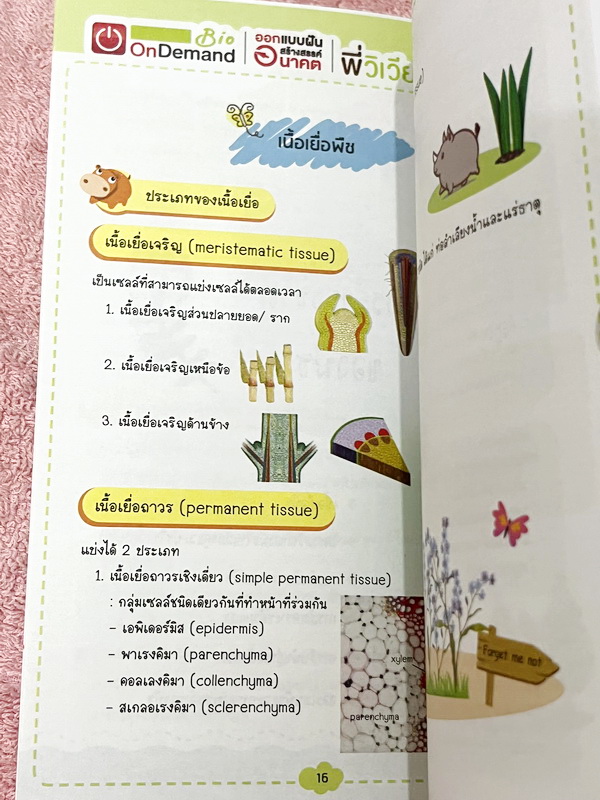 Bio
OnDemand
ออกแบบฝัน
สร้างสรรค์
อนาคต
พี่วิเวีย
เนื้อเยื่อพืช
ประเภทของเนื้อเยื่อ
เนื้อเยื่อเจริญ (meristematic tissue)
เป็นเซลล์ที่สามารถแบ่งเซลล์ได้ตลอดเวลา
1. เนื้อเยื่อเจริญส่วนปลายยอด/ ราก
2. เนื้อเยื่อเจริญเหนือข้อ
3. เนื้อเยื่อเจริญด้านข้าง
เนื้อเยื่อถาวร (permanent tissue)
แบ่งได้ 2 ประเภท
1. เนื้อเยื่อถาวรเชิงเดี่ยว (simple permanent tissue)
: กลุ่มเซลล์ชนิดเดียวกันที่ทำหน้าที่ร่วมกัน
- เอพิเดอร์มิส (epidermis)
- พาเรงคิมา (parenchyma)
- คอลเลงคิมา (collenchyma)
- สเกลอเรงคิมา (sclerenchyma)
xylem
parenchyma
16
ได้แก่ ท่อลำเลียงน้ำและแร่ธาตุ
Forget me not